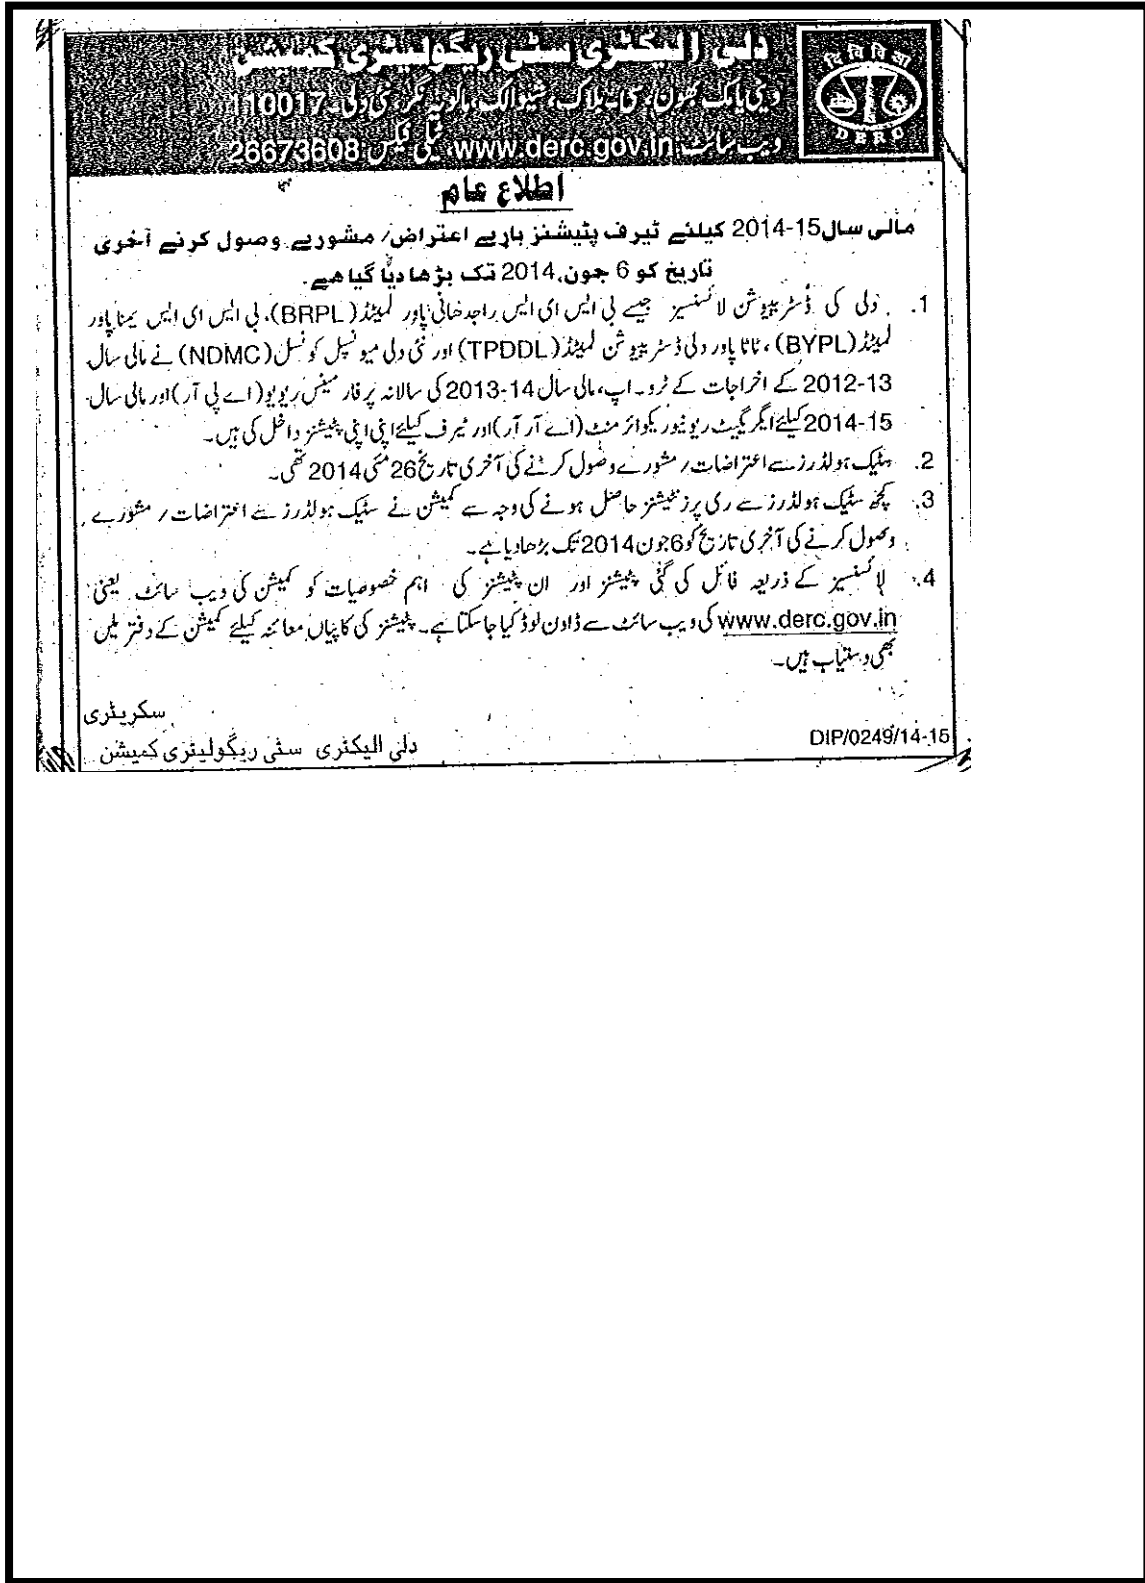 دلی الیکٹری سٹی ریگولیٹری کمیشن
ونی یامک بھون، سی۔بلاک، شیوالک، مالویہ نگر، نئی دلی۔110017
ویب سائٹ www.derc.gov.in، ٹیلی فیکس 26673608
दि वि वि आ
DERC
اطلاع عام
مالی سال2014-15 کیلئے ٹیرف پٹیشنز بارے اعتراض/ مشورے وصول کرنے آخری
تاریخ کو 6 جون،2014 تک بڑھا دیا گیا ھے۔
1. دلی کی ڈسٹریبیوشن لائسنسیز جیسے بی ایس ای ایس راجدھانی پاور لمیٹڈ(BRPL)، بی ایس ای ایس یمنا پاور
لمیٹڈ(BYPL)، ٹاٹا پاور دلی ڈسٹریبیوشن لمیٹڈ(TPDDL) اور نئی دلی میونسپل کونسل(NDMC) نے مالی سال
2012-13 کے اخراجات کے ٹرو۔اپ، مالی سال 2013-14 کی سالانہ پرفارمینس ریویو(اے پی آر)اور مالی سال
2014-15 کیلئے ایگریگیٹ ریونیو ریکوائرمنٹ(اے آر آر)اور ٹیرف کیلئے اپنی اپنی پٹیشنز داخل کی ہیں۔
2. سٹیک ہولڈرز سے اعتراضات/ مشورے وصول کرنے کی آخری تاریخ 26 مئی 2014 تھی۔
3. کچھ سٹیک ہولڈرز سے ری پرزنٹیشنز حاصل ہونے کی وجہ سے کمیشن نے سٹیک ہولڈرز سے اعتراضات/ مشورے
وصول کرنے کی آخری تاریخ کو 6 جون 2014 تک بڑھا دیا ہے۔
4. لائسنسیز کے ذریعہ فائل کی گئی پٹیشنز اور ان پٹیشنز کی اہم خصوصیات کو کمیشن کی ویب سائٹ یعنی
www.derc.gov.in کی ویب سائٹ سے ڈاون لوڈ کیا جاسکتا ہے۔ پٹیشنز کی کاپیاں معائنہ کیلئے کمیشن کے دفتر میں
بھی دستیاب ہیں۔
سکریٹری
دلی الیکٹری سٹی ریگولیٹری کمیشن
DIP/0249/14-15